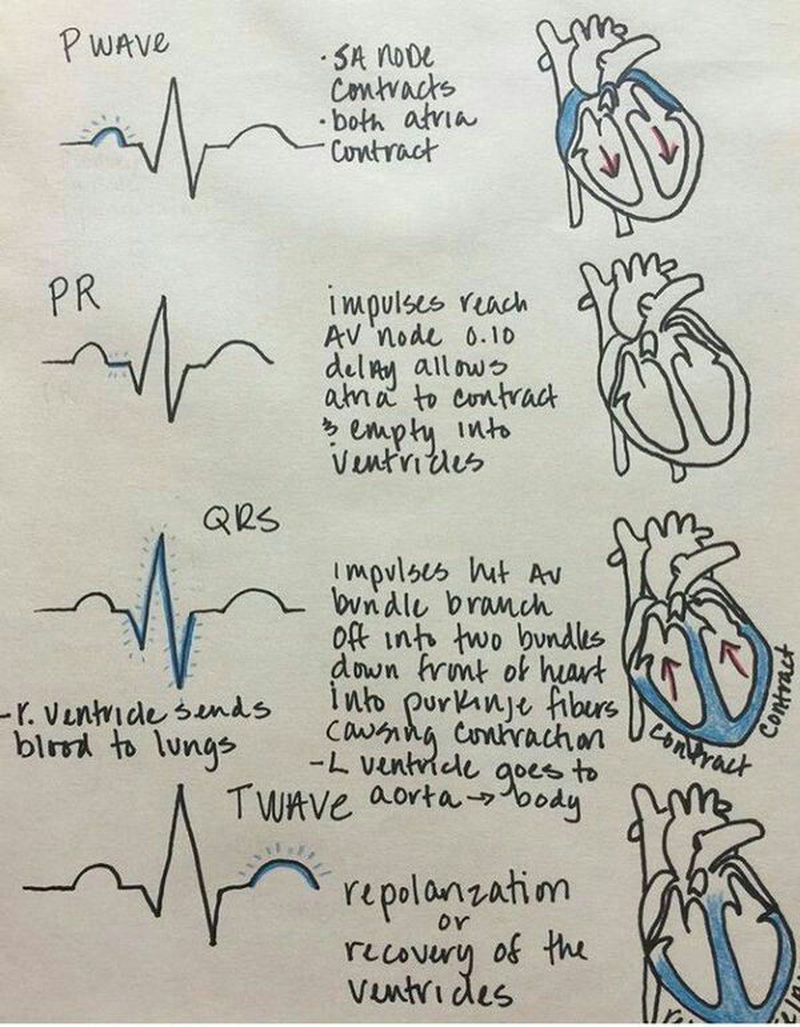 P WAVE
· SA NODE
contracts
· both atria
contract
PR
impulses reach
AV node 0.10
delay allows
atria to contract
& empty into
ventricles
QRS
impulses hit AV
bundle branch
off into two bundles
down front of heart
into purkinje fibers
causing contraction
- L ventricle goes to
aorta → body
- r. ventricle sends
blood to lungs
contract
contract
T WAVE
repolarization
or
recovery of the
ventricles